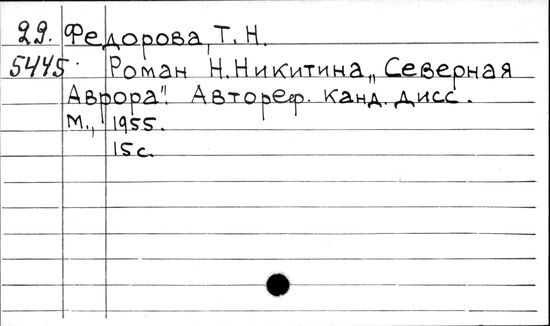 29. Федорова, Т. Н.
5445. Роман Н. Никитина „Северная
Аврора". Автореф. канд. дисс.
М., 1955.
15 с.